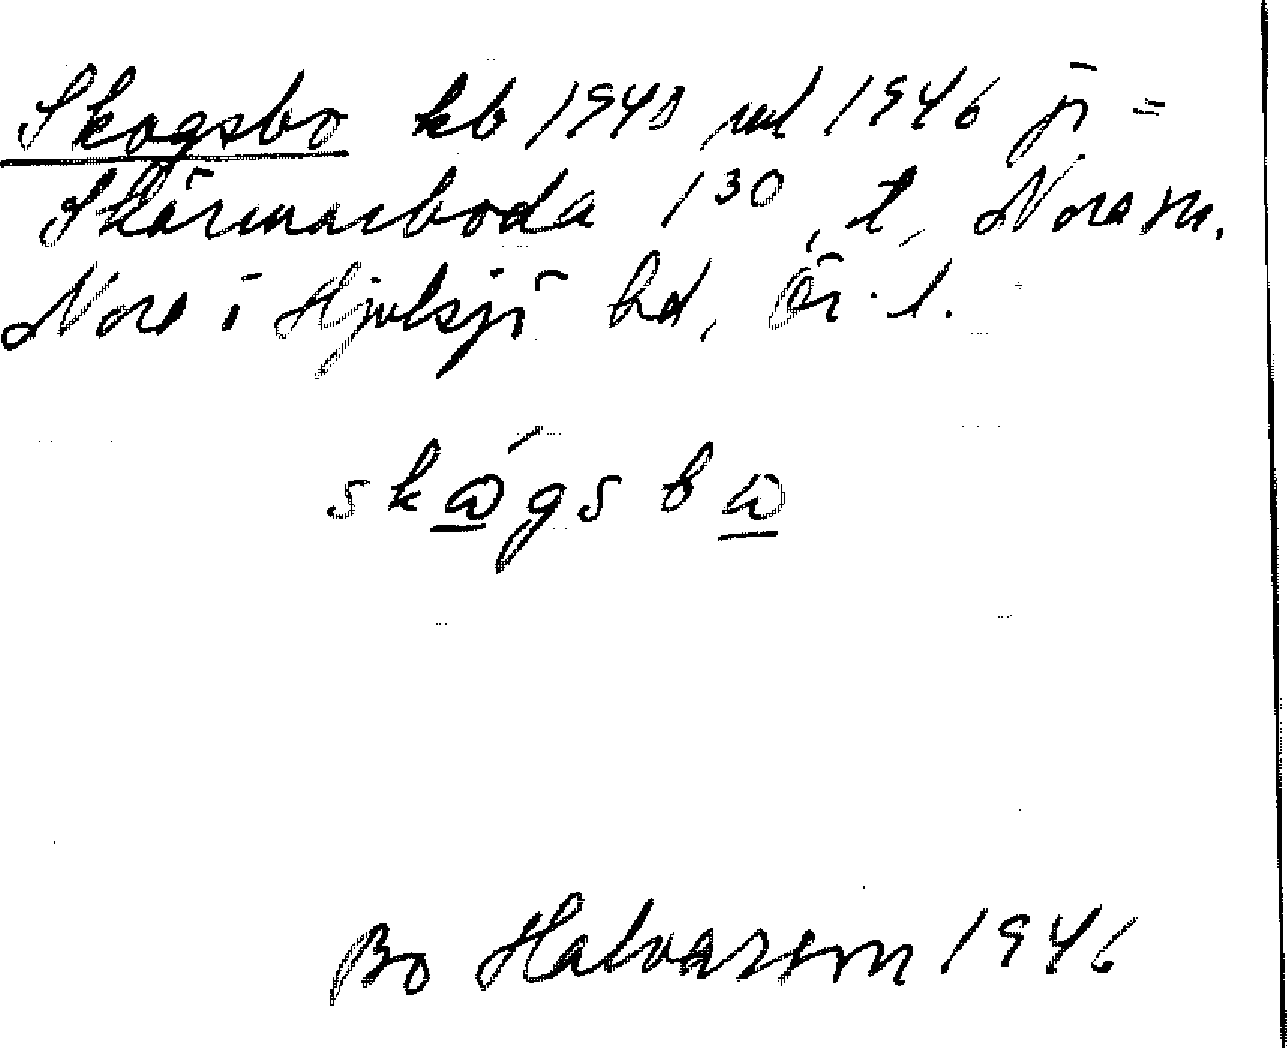 Skogsbo kb 1940 ml 1946 ji =
Skärmarboda 1³⁰, t, Nora sn.
Nora i Hjulsjö hd, Ör. l.
skⱺ́gsbⱺ
Bo Halvarsson 1946